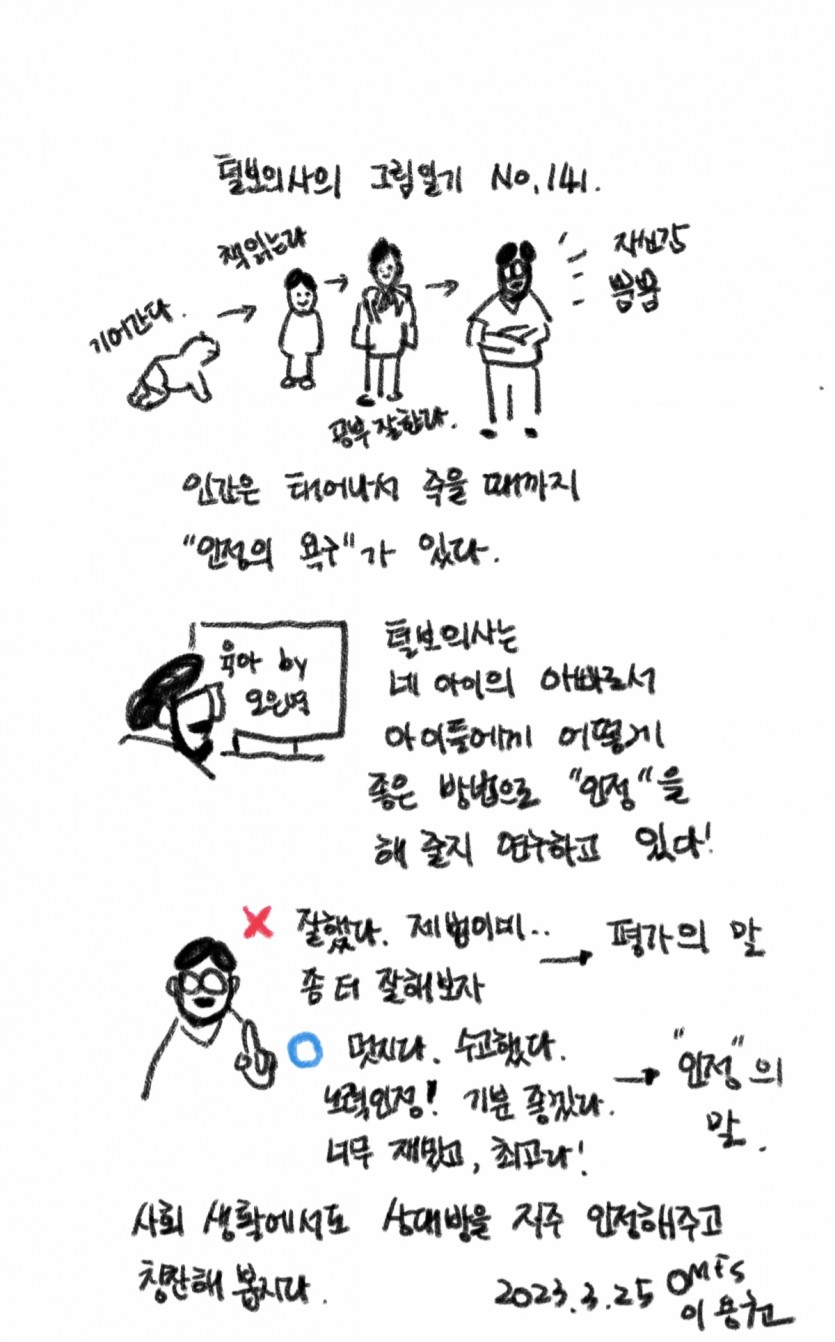 털보의사의 그림일기 No.141.
책읽는다
자신감
뿜뿜
기어간다.
공부 잘한다.
인간은 태어나서 죽을 때까지
"인정의 욕구"가 있다.
육아 by
오은영
털보의사는
네 아이의 아빠로서
아이들에게 어떻게
좋은 방법으로 "인정"을
해 줄지 연구하고 있다!
X 잘했다. 제법이네.. → 평가의 말
좀 더 잘해보자
O 멋지다. 수고했다.
노력인정! 기분 좋겠다. → "인정"의
너무 재밌고, 최고다! 말.
사회 생활에서도 상대방을 자주 인정해주고
칭찬해 봅시다.
2023.3.25 OMFS
이용권